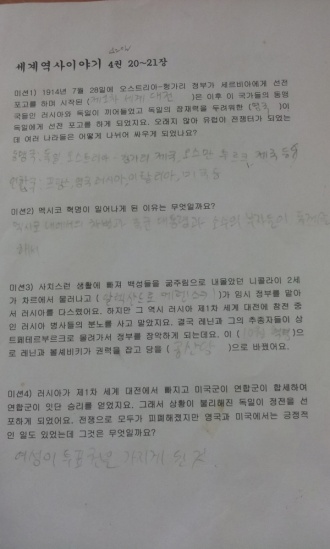 세계역사이야기 4권 20~21장
미션1) 1914년 7월 28일에 오스트리아-헝가리 정부가 세르비아에게 선전
포고를 하여 시작된 (제1차 세계 대전)은 이후 이 국가들의 동맹
국들인 러시아와 독일이 끼어들었고 독일의 잠재력을 두려워한 (영국)이
독일에게 선전 포고를 하게 되었지요. 오래지 않아 유럽이 전쟁터가 되었는
데 여러 나라들은 어떻게 나뉘어 싸우게 되었나요?
동맹국: 독일 오스트리아 헝가리 제국, 오스만 투르크 제국 등
연합국: 프랑스, 영국 러시아, 이탈리아, 미국 등
미션2) 멕시코 혁명이 일어나게 된 이유는 무엇일까요?
미션3) 사치스런 생활에 빠져 백성들을 굶주림으로 내몰았던 니콜라이 2세
가 차르에서 물러나고 (알렉산드르 케렌스키)가 임시 정부를 맡아
서 러시아를 다스렸어요. 하지만 그 역시 러시아 제1차 세계 대전에 참전 중
인 러시아 병사들의 분노를 사고 말았지요. 결국 레닌과 그의 추종자들이 상
트페테르부르크로 몰려가서 정부를 장악하게 되는데요. 이 (10월 혁명)으
로 레닌과 볼셰비키가 권력을 잡고 당을 (공산당)으로 바꿨어요.
미션4) 러시아가 제1차 세계 대전에서 빠지고 미국군이 연합군이 합세하여
연합군이 잇단 승리를 얻었지요. 그래서 상황이 불리해진 독일이 정전을 선
포하게 되었어요. 전쟁으로 모두가 피폐해졌지만 영국과 미국에서는 긍정적
인 일도 있었는데 그것은 무엇일까요?
여성이 투표권을 가지게 된 것